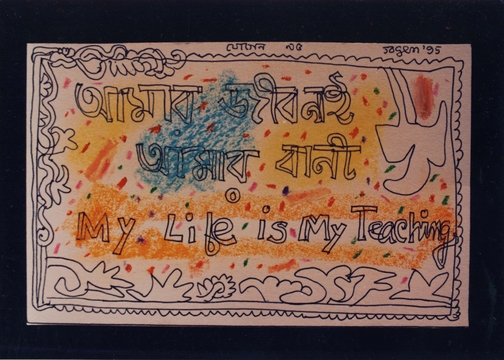 যোগেন ৯৫ Jogen '95
আমার জীবনই
আমার বানী
My Life is My Teaching